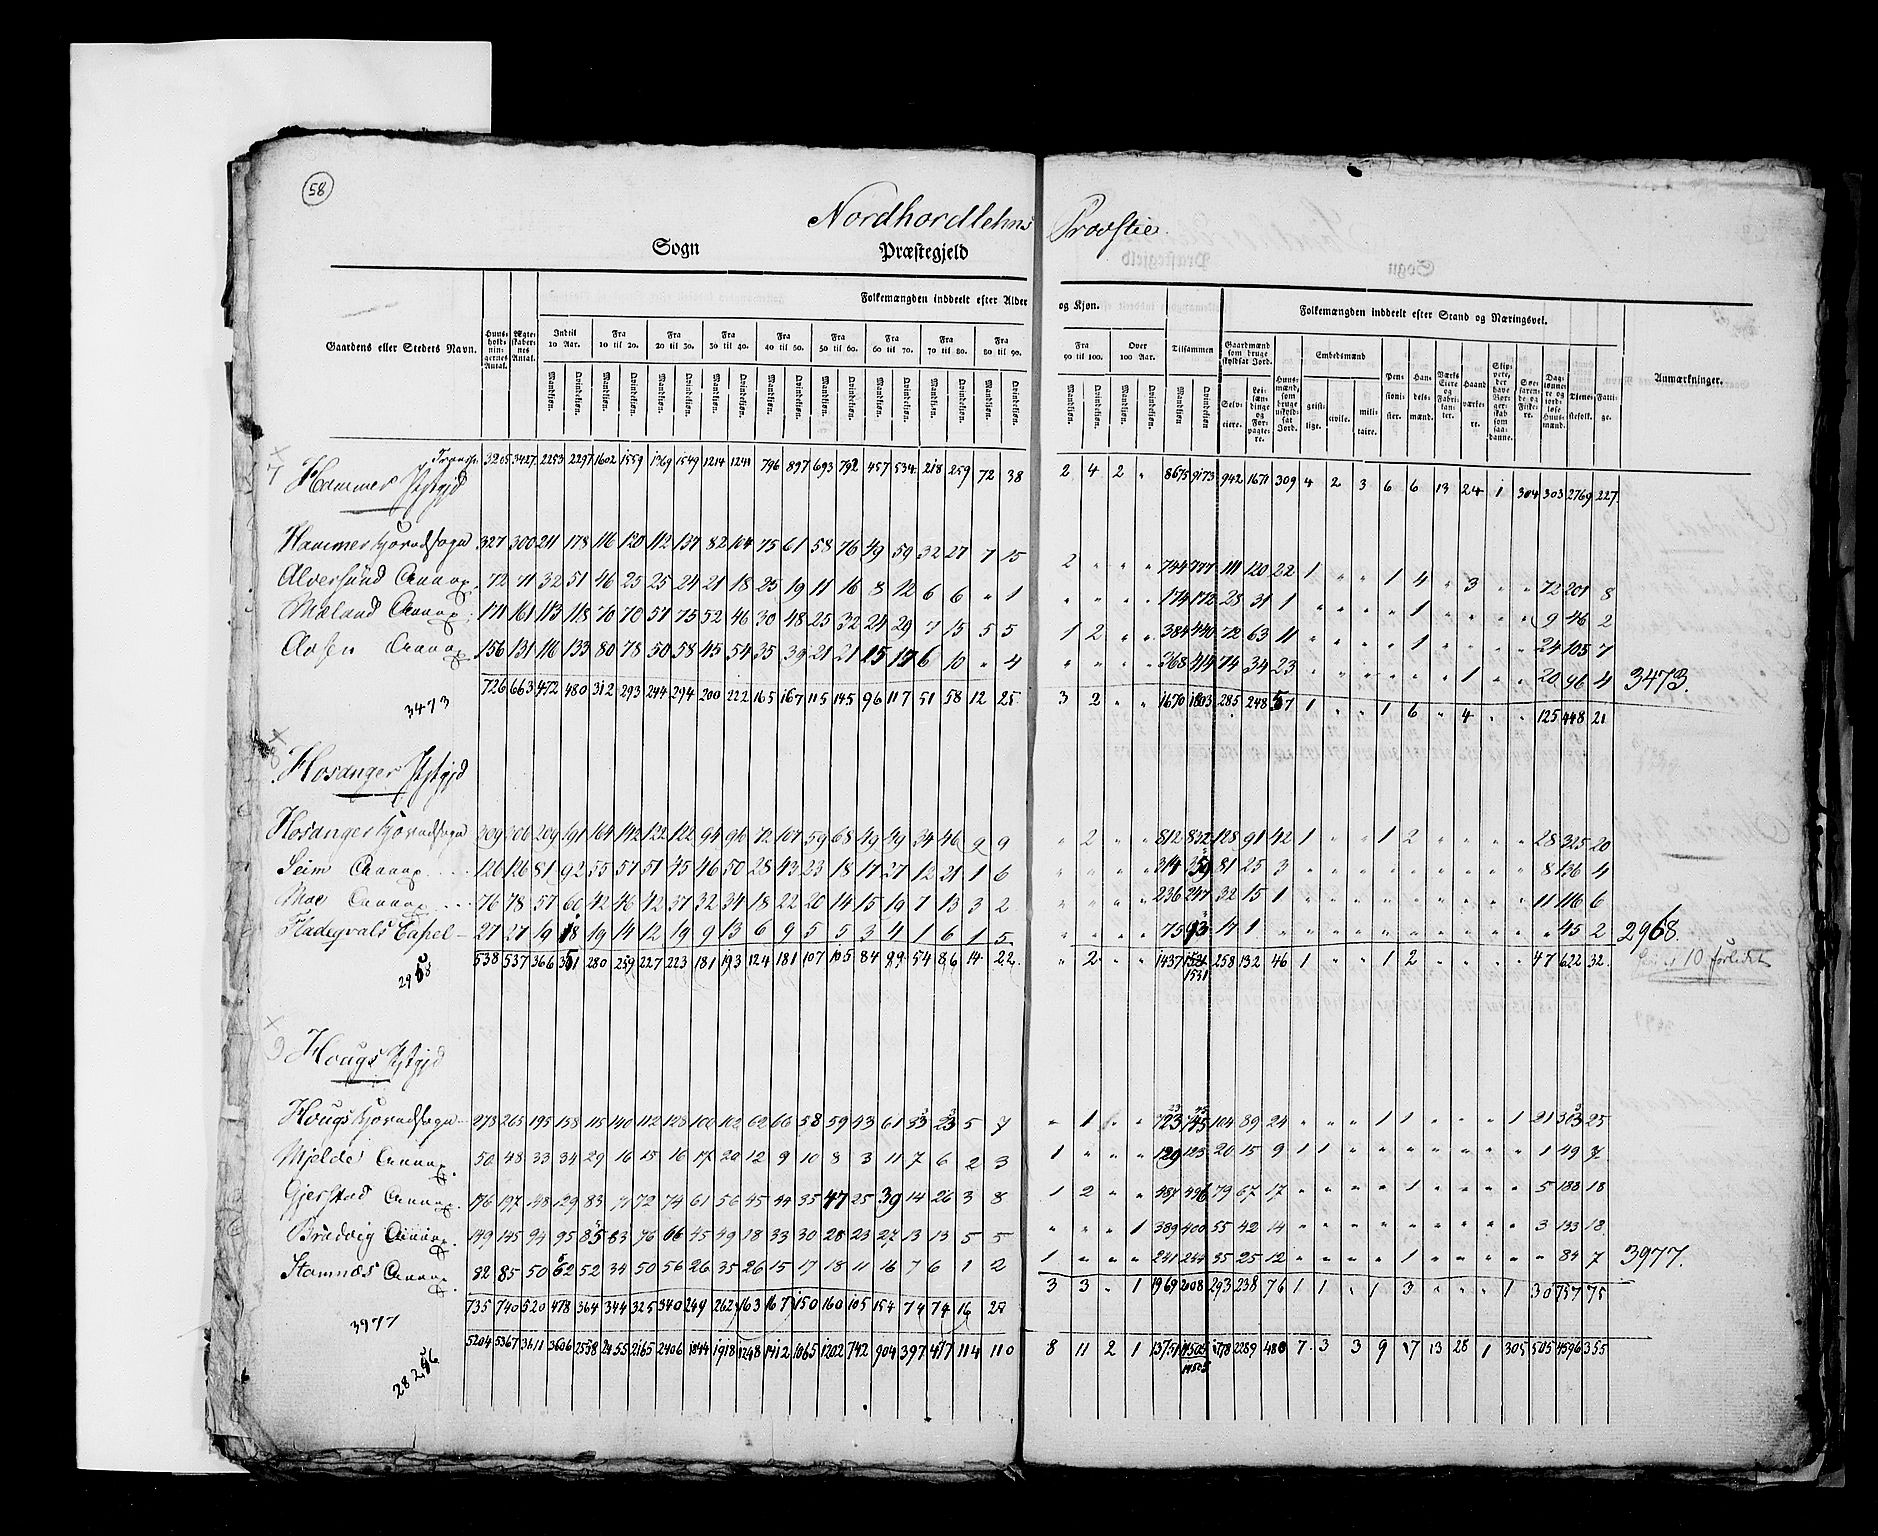 58
Nordhordlehns Provstie
Sogn Præstegjeld
Folkemængden inddeelt efter Alder og Kjøn. Folkemængden inddeelt efter Stand og Næringsvei.
Gaardens eller Stedets Navn. Huusholdningernes Antal. Ægteskabernes Antal. Indtil 10 Aar. Fra 10 til 20. Fra 20 til 30. Fra 30 til 40. Fra 40 til 50. Fra 50 til 60. Fra 60 til 70. Fra 70 til 80. Fra 80 til 90. Fra 90 til 100. Over 100 Aar. Tilsammen Gaardmænd som bruge skyldsat Jord. Embedsmænd Anmærkninger.
Mandkjøn. Qvindekjøn. Selveiere. Leilændinge og Forpagtere. Huusmænd som bruge uskyldsat Jord. geistlige. civile. militaire. Pensionister. Handelsmænd. Værks Eiere og Fabrikanter. Haandværkere. Søefarende og Fiskere. Tjenestefolk. Fattige.
Transp. 3265 3427 2253 2297 1602 1559 1369 1549 1214 1241 796 897 693 792 457 534 218 259 72 38 2 4 2 " 8675 9173 942 1671 309 4 2 3 6 6 13 24 1 304 303 2769 227
7 Hammer Pstgjd
Hammer Hovedsogn 327 300 211 178 116 120 112 137 82 104 75 61 58 76 49 59 32 27 7 15 2 " " " 744 777 111 120 22 1 " " 1 4 " 3 " " 72 201 8
Alversund Annex. 72 71 32 51 46 25 25 24 21 18 25 19 11 16 8 12 6 6 " 1 " " " " 174 172 28 31 1 " " " " 1 " " " " 9 46 2
Mæland Annex. 171 161 113 118 70 70 57 75 52 46 30 48 25 32 24 29 7 15 5 5 1 2 " " 384 440 72 63 11 " " " " 1 " " " " 24 105 7
Aasen Annex 156 131 116 133 80 78 50 58 45 54 35 39 21 21 15 17 6 10 " 4 " " " " 368 414 74 34 23 " " " " " " 1 " " 20 96 4 3473.
3473 726 663 472 480 312 293 244 294 200 222 165 167 115 145 96 117 51 58 12 25 3 2 " " 1670 1803 285 248 57 1 " " 1 6 " 4 " " 125 448 21
8 Hosanger Pstgjd
Hosanger Hovedsogn 309 306 209 191 164 142 122 122 94 96 72 107 59 68 49 49 34 46 9 9 " 2 " " 812 832 128 91 42 1 " " 1 2 " " " " 28 325 20
Seim Annex 126 126 81 92 55 57 51 45 46 50 28 43 23 18 17 27 12 21 1 6 " " " " 314 359 81 25 3 " " " " " " " " " 8 136 4
Moe Annex 76 78 57 60 42 46 42 37 32 34 18 22 20 14 15 19 7 13 3 2 " " " " 236 247 32 15 1 " " " " " " " " " 11 116 6
Fladeqvals Capel 27 27 19 18 19 14 12 19 9 13 6 9 5 5 3 4 1 6 1 5 " " " " 75 93 17 1 " " " " " " " " " " " 45 2 2968.
538 537 366 351 280 259 227 223 181 193 124 181 107 105 84 99 54 86 14 22 " 2 " " 1437 1521 258 132 46 1 " " 1 2 " " " " 47 622 32
1531
10 forledet
9 Hougs Pstgjd
Hougs Hovedsogn 273 265 195 158 115 140 112 128 100 102 62 66 58 59 43 61 33 23 5 7 " 1 " " 723 745 104 89 24 " " " 1 1 " " " 1 21 303 25
Mjelde Annex. 50 48 33 34 29 16 15 16 17 20 12 9 10 8 3 11 7 6 2 3 1 " " " 129 123 20 15 9 1 1 " " " " " " " 1 49 7
Gjerstad Annex. 176 197 148 129 83 71 72 74 61 56 45 44 35 47 25 39 14 26 3 8 1 2 " " 487 496 79 67 17 " " " " 1 " " " " 5 188 18
Bruvig Annex. 149 145 94 95 85 83 76 66 45 49 18 33 30 28 23 27 13 13 5 5 " " " 1 389 400 55 42 14 " " " " " " " " " 3 133 18
Stamnæs Annex. 82 85 50 62 52 34 50 56 26 35 26 15 17 18 11 16 7 6 1 2 1 " " " 241 244 35 25 12 " " " " 1 " " " " " 84 7 3977.
3977 735 740 520 478 364 344 325 340 249 262 163 167 150 160 105 154 74 74 16 25 3 3 " 1 1969 2008 293 238 76 1 1 " 1 3 " " " 1 30 757 75
5204 5367 3611 3606 2558 2455 2165 2406 1844 1918 1248 1412 1065 1202 742 904 397 477 114 110 8 11 2 1 13751 14505 1778 2289 488 7 3 3 9 17 13 28 1 305 505 4596 355
14505
28256